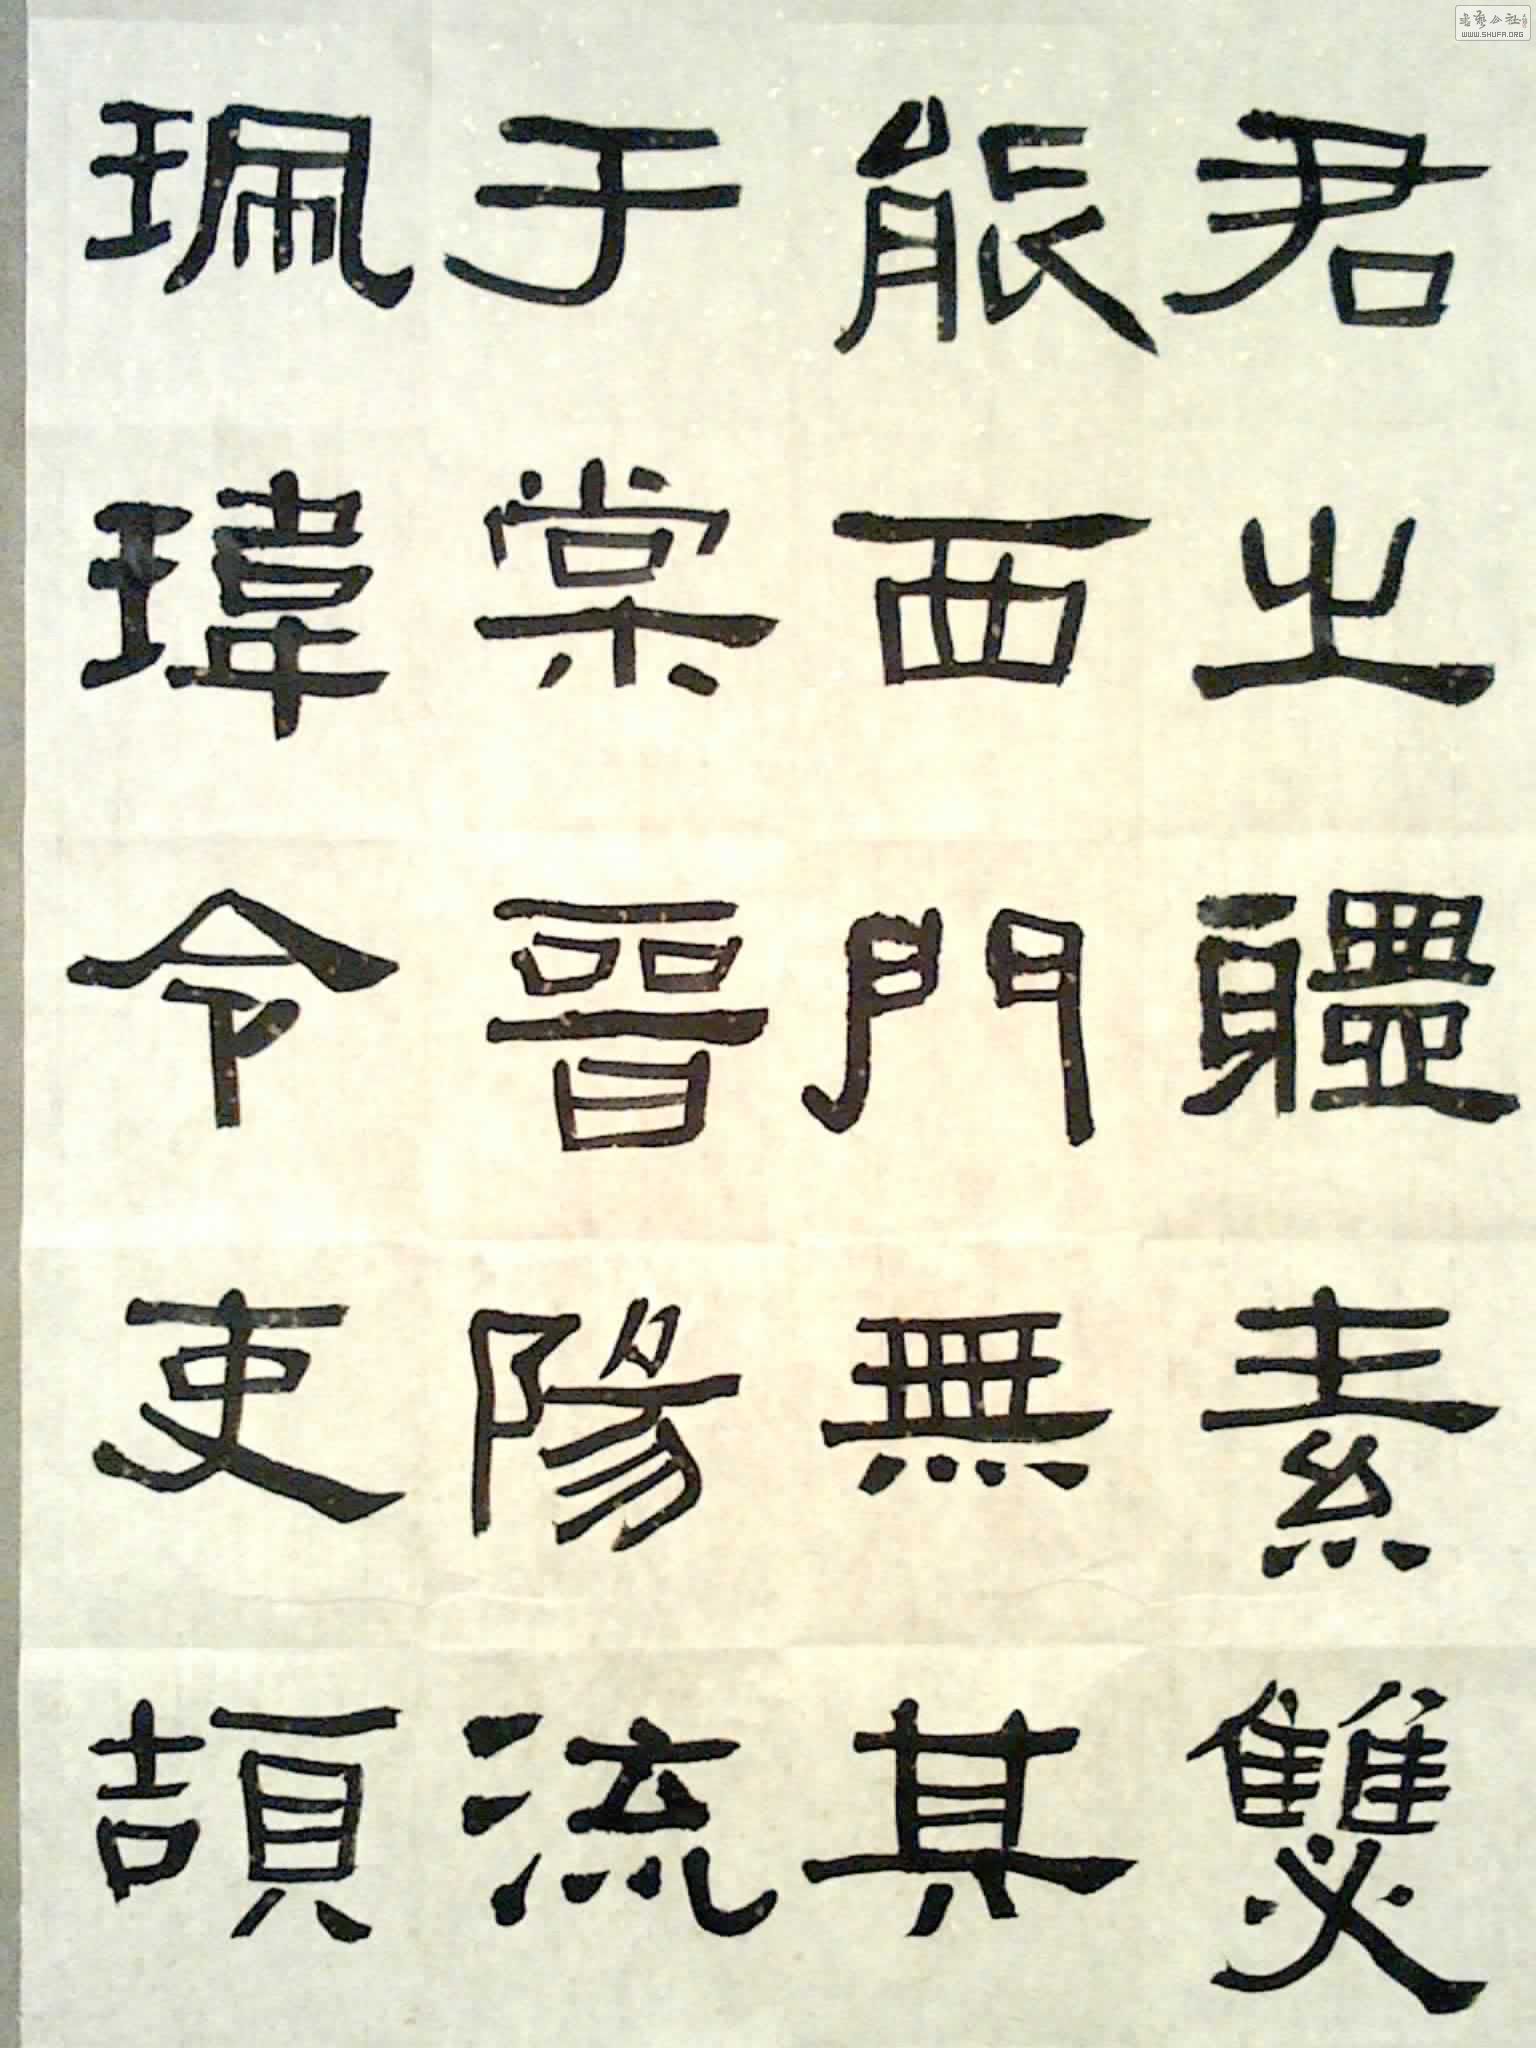 君之軆素雙
能西門無其
于棠晉陽流
珮瑋令吏頡
书艺公社
WWW.SHUFA.ORG